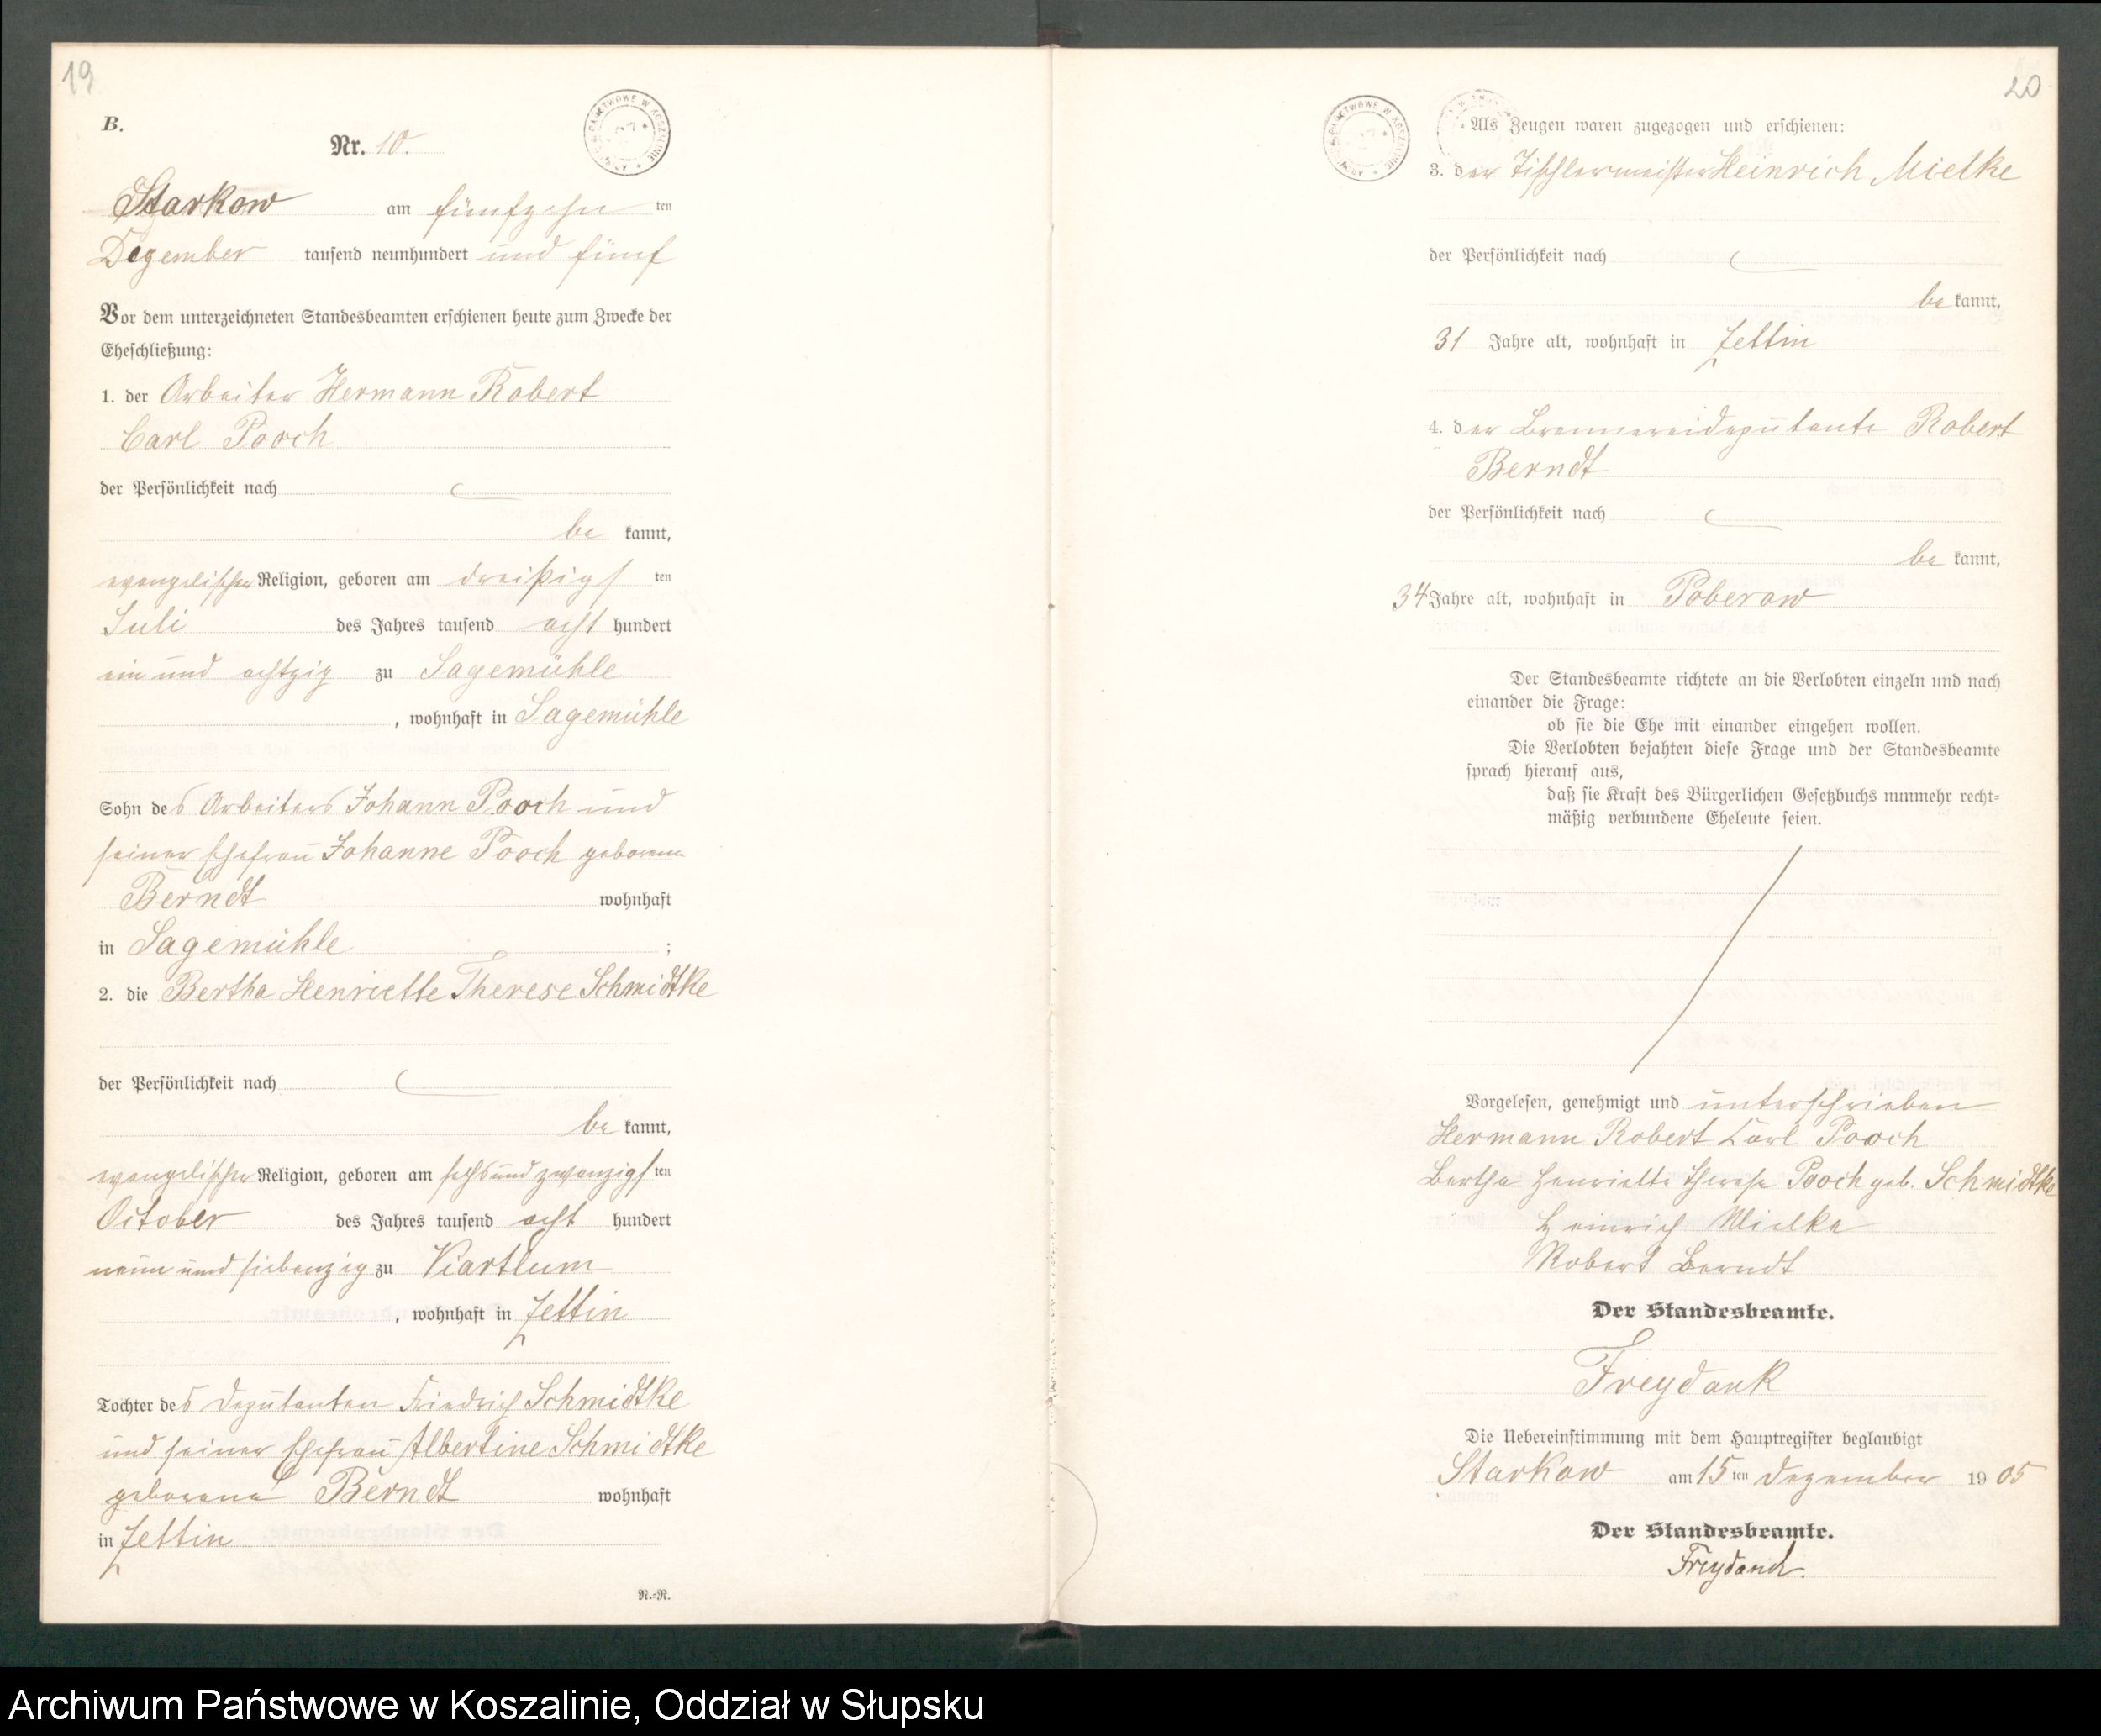 19
B.
Nr. 10.
Starkow am fünfzehn ten
Dezember tausend neunhundert und fünf
Vor dem unterzeichneten Standesbeamten erschienen heute zum Zwecke der
Eheschließung:
1. der Arbeiter Hermann Robert
Carl Pooch
der Persönlichkeit nach
be kannt,
evangelischer Religion, geboren am dreißigs ten
Juli des Jahres tausend acht hundert
ein und achtzig zu Sagemühle
, wohnhaft in Sagemühle
Sohn des Arbeiters Johann Pooch und
seiner Ehefrau Johanne Pooch geborene
Berndt wohnhaft
in Sagemühle ;
2. die Bertha Henriette Therese Schmidtke
der Persönlichkeit nach
be kannt,
evangelischer Religion, geboren am sechsundzwanzigs ten
October des Jahres tausend acht hundert
neun und siebenzig zu Viartlum
, wohnhaft in Zettin
Tochter des Deputanten Friedrich Schmidtke
und seiner Ehefrau Albertine Schmidtke
geborene Berndt wohnhaft
in Zettin
N.=N.
20
Als Zeugen waren zugezogen und erschienen:
3. der Tischlermeister Heinrich Mielke
der Persönlichkeit nach
be kannt,
31 Jahre alt, wohnhaft in Zettin
4. der Brennereideputante Robert
Berndt
der Persönlichkeit nach
be kannt,
34 Jahre alt, wohnhaft in Poberow
Der Standesbeamte richtete an die Verlobten einzeln und nach
einander die Frage:
ob sie die Ehe mit einander eingehen wollen.
Die Verlobten bejahten diese Frage und der Standesbeamte
sprach hierauf aus,
daß sie Kraft des Bürgerlichen Gesetzbuchs nunmehr recht=
mäßig verbundene Eheleute seien.
Vorgelesen, genehmigt und unterschrieben
Hermann Robert Carl Pooch
Bertha Henriette Therese Pooch geb. Schmidtke
Heinrich Mielke
Robert Berndt
Der Standesbeamte.
Freydank
Die Uebereinstimmung mit dem Hauptregister beglaubigt
Starkow am 15 ten Dezember 19 05
Der Standesbeamte.
Freydank.
Archiwum Państwowe w Koszalinie, Oddział w Słupsku